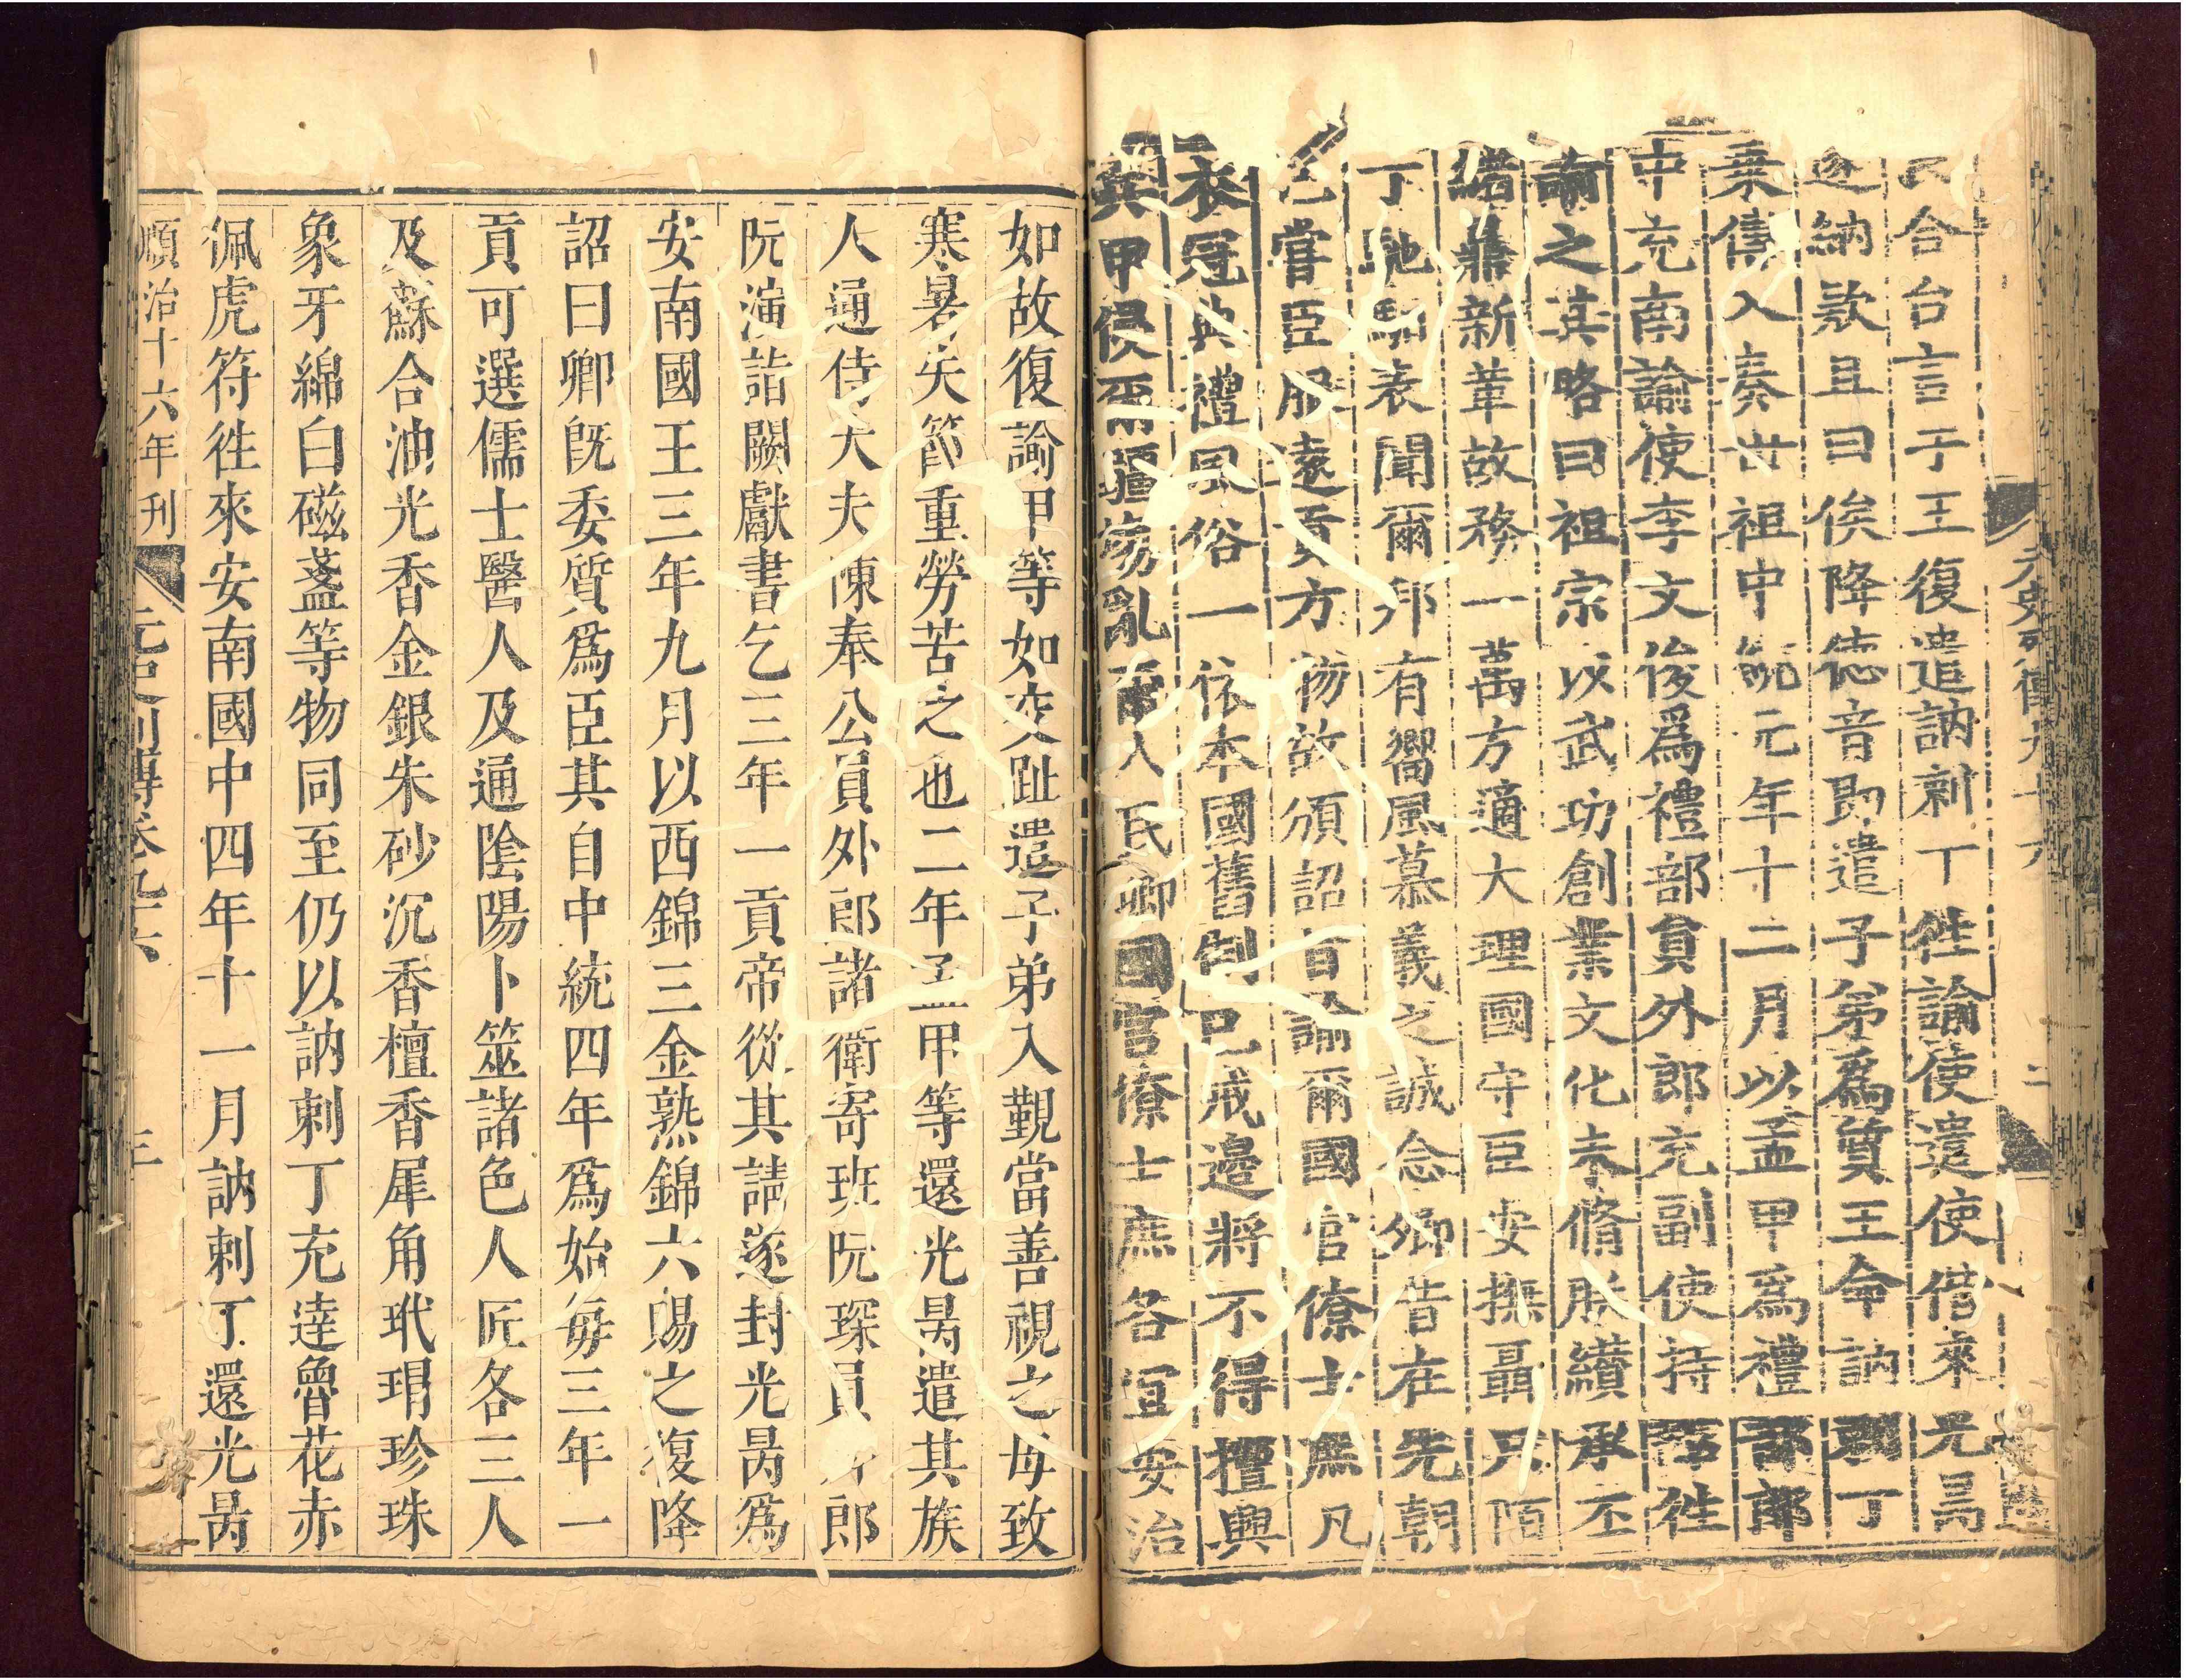 合台言于王復遣訥剌丁徃諭使遣使偕來光昺
遂納欵且曰俟降徳音即遣子弟爲質王命訥剌丁
乗傳入奏世祖中統元年十二月以孟甲爲禮部郎
中充南諭使李文俊爲禮部員外郎充副使持詔徃
諭之其略曰祖宗以武功創業文化未脩朕纘承丕
緒鼎新革故務一萬方適大理國守臣安撫聶只陌
丁馳馹表聞爾邦有嚮風慕義之誠念卿昔在先朝
已嘗臣服遠貢方物故頒詔旨諭爾國官僚士庶凡
衣冠典禮風俗一依本國舊制已戒邊將不得擅興
兵甲侵爾疆埸亂爾人民卿國官僚士庶各宜安治
元史列傳九十六 二
如故復諭甲等如交趾遣子弟入覲當善視之毋致
寒暑失節重勞苦之也二年孟甲等還光昺遣其族
人通侍大夫陳奉公員外郎諸衛寄班阮琛員外郎
阮演詣闕獻書乞三年一貢帝從其請遂封光昺爲
安南國王三年九月以西錦三金熟錦六賜之復降
詔曰卿既委質爲臣其自中統四年爲始毎三年一
貢可選儒士醫人及通陰陽卜筮諸色人匠各三人
及蘇合油光香金銀朱砂沉香檀香犀角玳瑁珍珠
象牙綿白磁盞等物同至仍以訥剌丁充達魯花赤
佩虎符徃來安南國中四年十一月訥剌丁還光昺
順治十六年刊 元史列傳卷九六 三